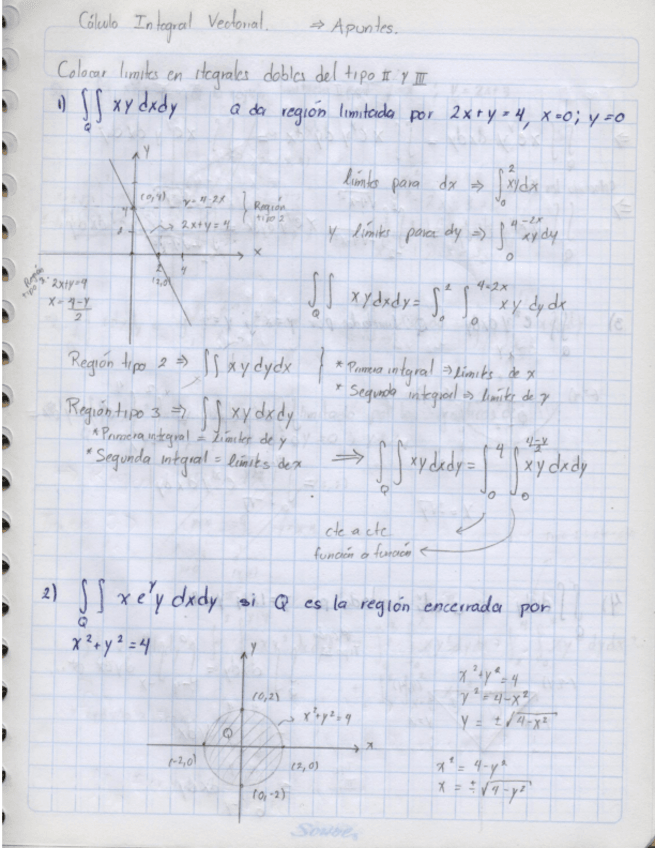 Cálculo Integral Vectorial. ⇒ Apuntes.
Colocar limites en itegrales dobles del tipo II y III
1) ∫∫_Q xy dxdy Q da región limitada por 2x+y=4, x=0; y=0
Y
(0,4) y=4-2x } Región tipo 2
4
2 → 2x+y=4
X
2 4
(2,0)
Región tipo 3. 2x+y=4
x= (4-y)/2
límites para dx ⇒ ∫_0^2 xydx
y límites para dy ⇒ ∫_0^{4-2x} xydy
∫∫_Q xydxdy = ∫_0^2 ∫_0^{4-2x} xy dy dx
Región tipo 2 ⇒ ∫∫ xy dydx } * Primera integral ⇒ límites de x
* Segunda integral ⇒ límites de y
Región tipo 3 ⇒ ∫∫ xy dxdy
* Primera integral = límites de y
* Segunda integral = límites de x ⇒ ∫∫_Q xydxdy = ∫_0^4 ∫_0^{(4-y)/2} xy dxdy
cte a cte
función a función
2) ∫∫_Q x e^y y dxdy si Q es la región encerrada por
x²+y²=4
Y
(0,2)
x²+y²=4
Q
x
(-2,0) (2,0)
(0,-2)
x²+y²=4
y²=4-x²
y = ±√(4-x²)
x² = 4-y²
x = ±√(4-y²)